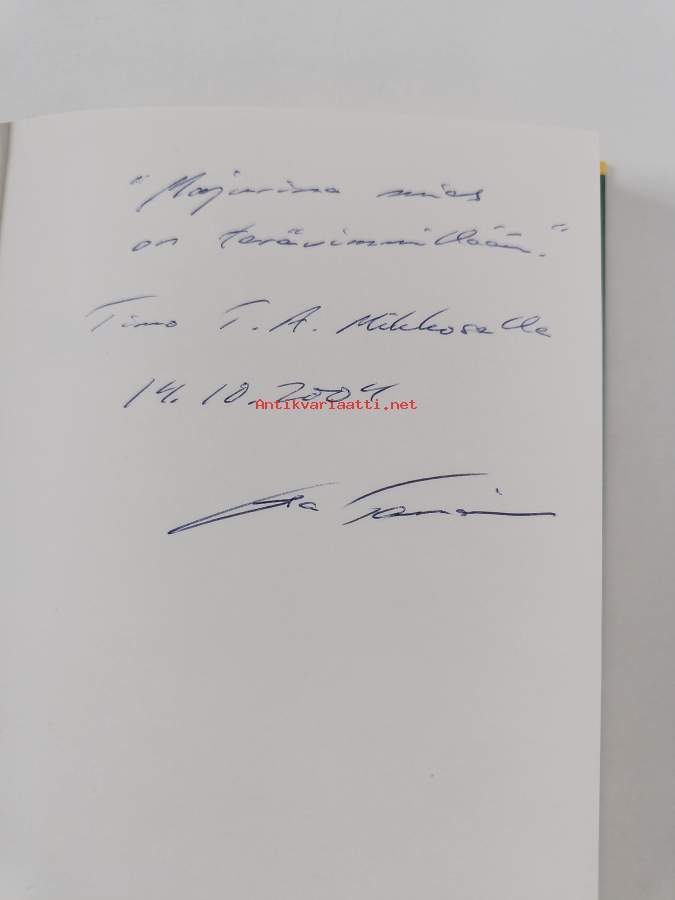 "Majurina mies
on terävimmillään."
Timo T. A. Mikkoselle
14.10.2004
Antikvariaatti.net